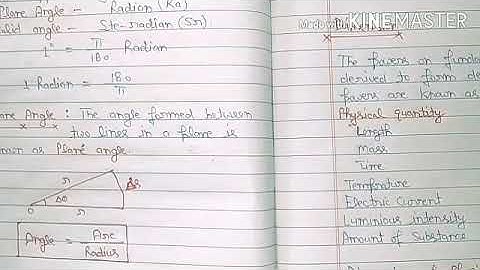 Plane Angle - Radian (Ra)
Solid angle - Ste-radian (Sr)
1° = π/180 Radian
1 Radian = 180/π
Plane Angle : The angle formed between
two lines in a plane is
known as plane angle.
r
Δθ
Δs
0
r
Angle = Arc/Radius
Made with KINEMASTER
The powers on fundam
derived to form de
powers are known as
Physical quantity
Length
Mass
Time
Temprature
Electric Current
Luminious intensity
Amount of Substance